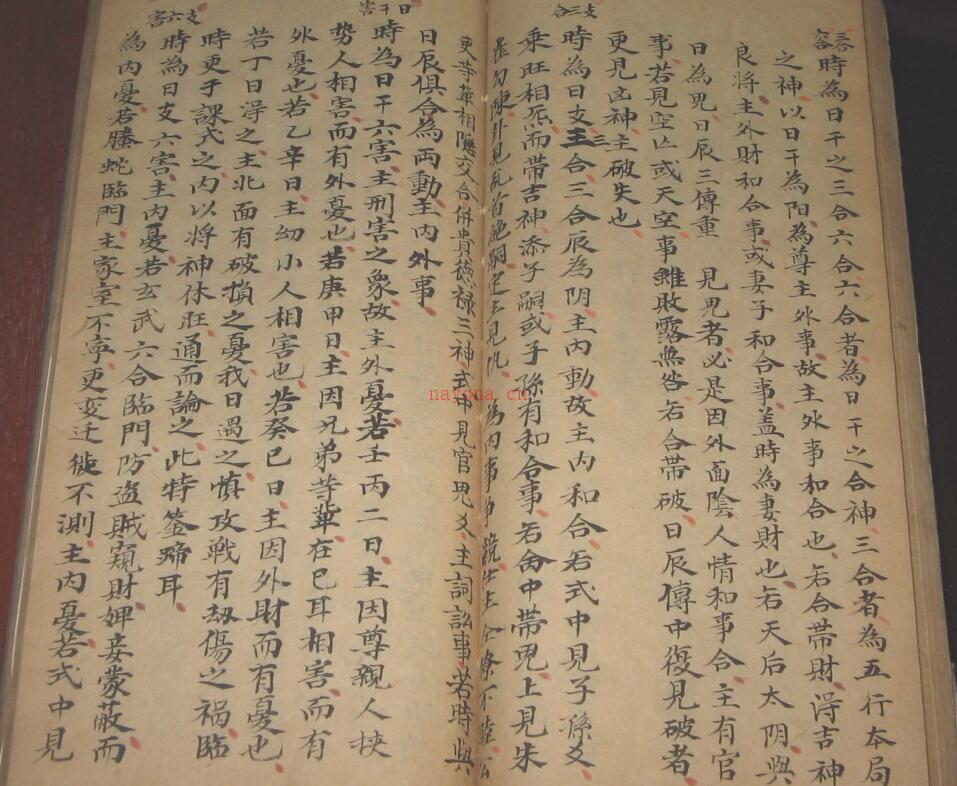 三合
六合
時為日干之三合六合六合者為日干之合神三合者為五行本局
之神以日干為阳為尊主外事故主外事和合也若合帶財得吉神
良將主外財和合事或妻子和合事盖時為妻財也若天后太阴與
日為鬼日辰三傳重見鬼者必是因外面陰人情和事合主有官
事若見空亡或天空事雖敗露無咎若合帶破日辰傳中復見破者
更見凶神主破失也
支三合
時為日支三合三合辰為阴主內動故主內和合若式中見子孫爻
乘旺相炁而帶吉神添子嗣或子孫有和合事若合中帶鬼上見朱
雀勾陳
更等輩相隱交合併貴德禄三神式中見官鬼爻主詞訟事若時與
日辰俱合為両動主內外事
日干害
時為日干六害主刑害之象故主外憂若壬丙二日主因尊親人挾
势人相害而有外憂也若庚甲日主因兄弟等輩在已耳相害而有
外憂也若乙辛日主幼小人相害也若癸已日主因外財而有憂也
若丁日淂之主北面有破損之憂我日遇之慎攻戦有刼傷之禍臨
時更于課式之内以将神休旺通而論之此特筌蹄耳
支六害
時為日支六害主內憂若玄武六合臨門防盗賊窺財婢妾蒙蔽而
為内憂若螣蛇臨門主家室不寧更変迁徙不測主内憂若式中見
nayona.cn